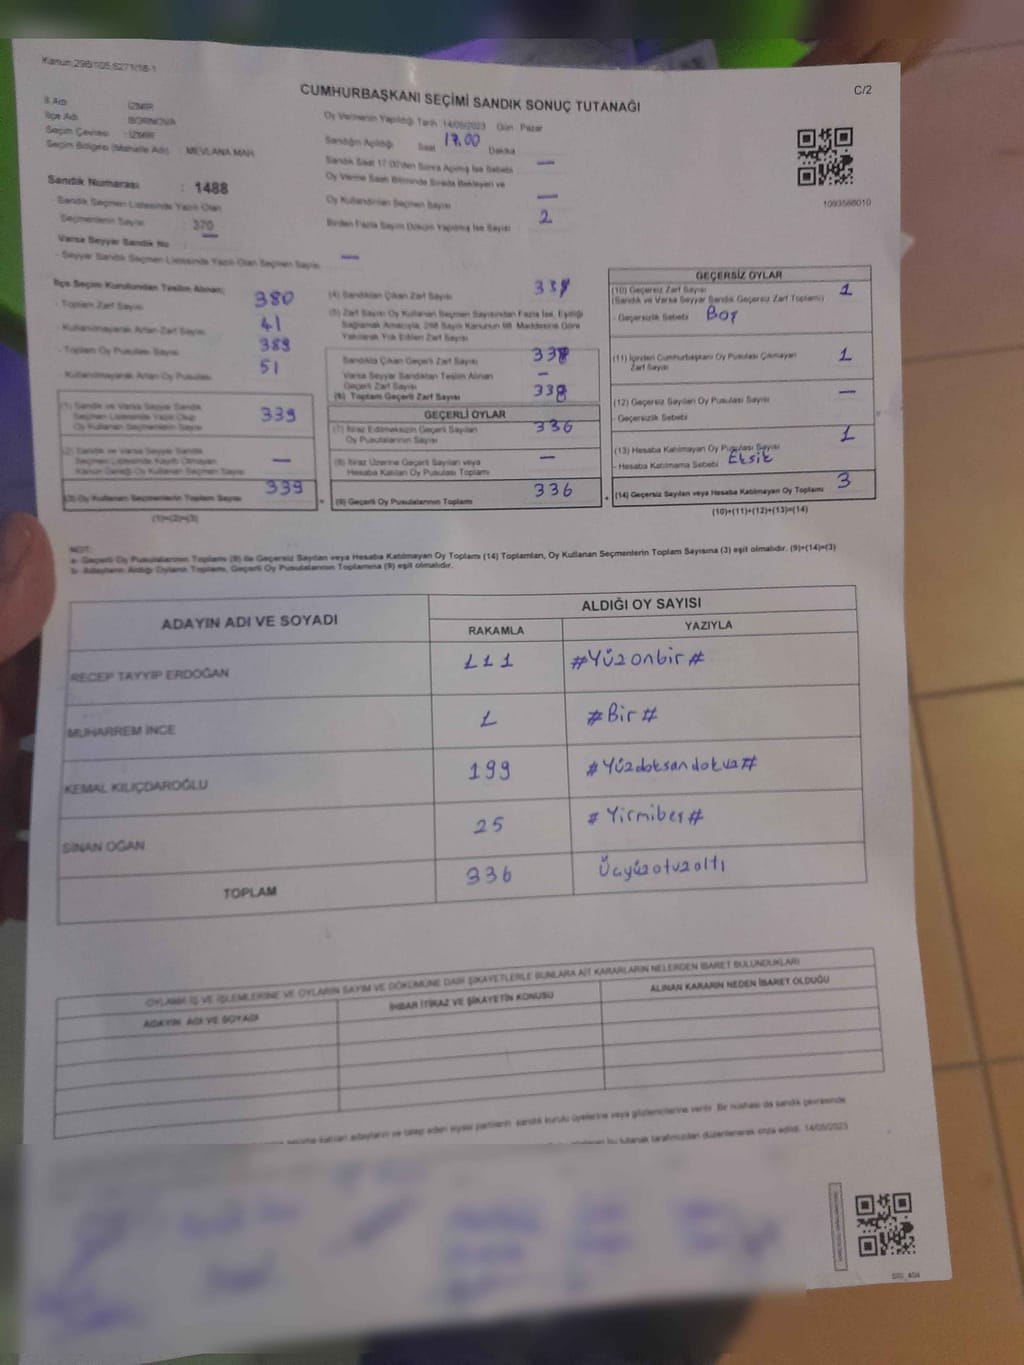 Kanun:298/105,6271/18-1
C/2
CUMHURBAŞKANI SEÇİMİ SANDIK SONUÇ TUTANAĞI
İl Adı İZMİR
İlçe Adı BORNOVA
Seçim Çevresi : İZMİR
Seçim Bölgesi (Mahalle Adı) : MEVLANA MAH.
Sandık Numarası : 1488
- Sandık Seçmen Listesinde Yazılı Olan
Seçmenlerin Sayısı : 370
Varsa Seyyar Sandık No
- Seyyar Sandık Seçmen Listesinde Yazılı Olan Seçmen Sayısı —
Oy Vermenin Yapıldığı Tarih 14/05/2023 Gün : Pazar
Sandığın Açıldığı Saat 17.00 Dakika
Sandık Saat 17:00'den Sonra Açılmış İse Sebebi —
Oy Verme Saati Bitiminde Sırada Bekleyen ve
Oy Kullandırılan Seçmen Sayısı —
Birden Fazla Sayım Döküm Yapılmış İse Sayısı 2
1093568010
İlçe Seçim Kurulundan Teslim Alınan;
- Toplam Zarf Sayısı 380
- Kullanılmayarak Artan Zarf Sayısı 41
- Toplam Oy Pusulası Sayısı 389
- Kullanılmayarak Artan Oy Pusulası 51
(1) Sandık ve Varsa Seyyar Sandık
Seçmen Listesinde Yazılı Olup
Oy Kullanan Seçmenlerin Sayısı 339
(2) Sandık ve Varsa Seyyar Sandık
Seçmen Listesinde Kayıtlı Olmayan
Kanun Gereği Oy Kullanan Seçmen Sayısı —
(3) Oy Kullanan Seçmenlerin Toplam Sayısı 339
(1)+(2)=(3)
(4) Sandıktan Çıkan Zarf Sayısı 339
(5) Zarf Sayısı Oy Kullanan Seçmen Sayısından Fazla İse, Eşitliği
Sağlamak Amacıyla, 298 Sayılı Kanunun 98. Maddesine Göre
Yakılarak Yok Edilen Zarf Sayısı
Sandıkta Çıkan Geçerli Zarf Sayısı 338
Varsa Seyyar Sandıktan Teslim Alınan
Geçerli Zarf Sayısı —
(6) Toplam Geçerli Zarf Sayısı 338
GEÇERLİ OYLAR
(7) İtiraz Edilmeksizin Geçerli Sayılan
Oy Pusulalarının Sayısı 336
(8) İtiraz Üzerine Geçerli Sayılan veya
Hesaba Katılan Oy Pusulası Toplamı —
(9) Geçerli Oy Pusulalarının Toplamı 336
GEÇERSİZ OYLAR
(10) Geçersiz Zarf Sayısı 1
(Sandık ve Varsa Seyyar Sandık Geçersiz Zarf Toplamı)
- Geçersizlik Sebebi Boş
(11) İçinden Cumhurbaşkanı Oy Pusulası Çıkmayan
Zarf Sayısı 1
(12) Geçersiz Sayılan Oy Pusulası Sayısı —
- Geçersizlik Sebebi
(13) Hesaba Katılmayan Oy Pusulası Sayısı 1
- Hesaba Katılmama Sebebi Eksik
(14) Geçersiz Sayılan veya Hesaba Katılmayan Oy Toplamı 3
(10)+(11)+(12)+(13)=(14)
NOT:
a- Geçerli Oy Pusulalarının Toplamı (9) ile Geçersiz Sayılan veya Hesaba Katılmayan Oy Toplamı (14) Toplamları, Oy Kullanan Seçmenlerin Toplam Sayısına (3) eşit olmalıdır. (9)+(14)=(3)
b- Adayların Aldığı Oyların Toplamı, Geçerli Oy Pusulalarının Toplamına (9) eşit olmalıdır.
ADAYIN ADI VE SOYADI
ALDIĞI OY SAYISI
RAKAMLA YAZIYLA
RECEP TAYYİP ERDOĞAN 111 #Yüzonbir#
MUHARREM İNCE 1 #Bir#
KEMAL KILIÇDAROĞLU 199 #Yüzdoksandokuz#
SİNAN OĞAN 25 #Yirmibeş#
TOPLAM 336 Üçyüzotuzaltı
OYLAMA İŞ VE İŞLEMLERİNE VE OYLARIN SAYIM VE DÖKÜMÜNE DAİR ŞİKAYETLERLE BUNLARA AİT KARARLARIN NELERDEN İBARET BULUNDUKLARI
ADAYIN ADI VE SOYADI İHBAR İTİRAZ VE ŞİKAYETİN KONUSU ALINAN KARARIN NEDEN İBARET OLDUĞU
adayların ve talep eden siyasi partilerin sandık kurulu üyelerine veya gözlemcilerine verilir. Bir nüshası da sandık çevresinde
bu tutanak tarafımızdan düzenlenerek imza edildi. 14/05/2023